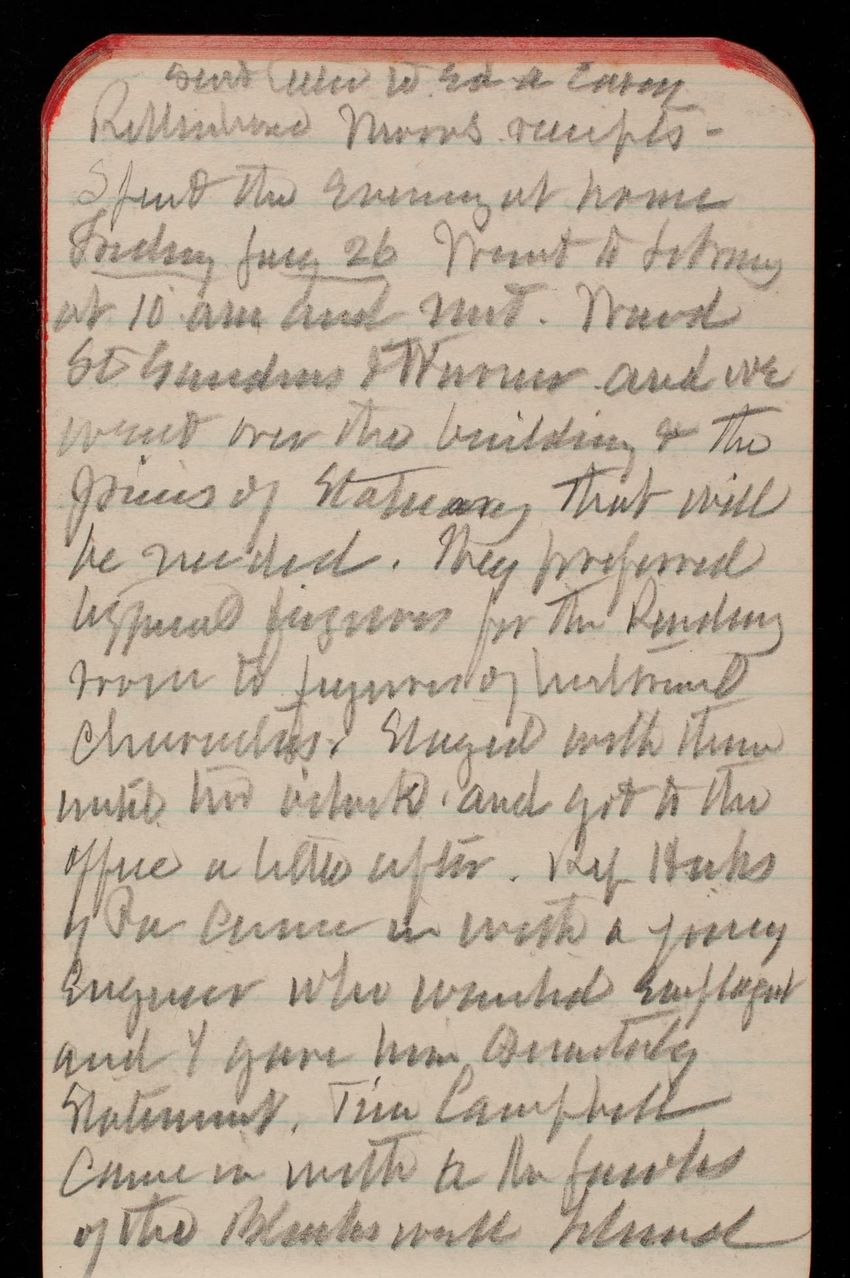 sent letter to Ed a Casey
Rittenhouse Moors receipts -
Spent the Evening at home
Friday Jany 26 Went to Library
at 10 am and met. Ward
St Gaudens & Warner and we
went over the building & the
pieces of Statuary that will
be needed. They preferred
typical figures for the Reading
room to figures of historical
Characters. Stayed with them
until two oclock. and got to the
office a little after. Rep Hicks
of Pa came in with a young
Engineer who wanted Employmt
and I gave him Quarterly
Statement. Tim Campbell
Came in with a Mr
of the Blackwell Island